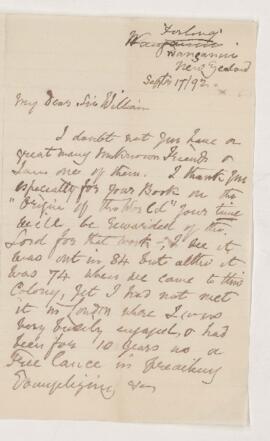 Fordings
Wanganui
Wanganui
New Zealand
Septr 17/92
My Dear Sir William
I doubt not you have a
great many unknown Friends &
I am one of them. I thank you
especially for your Book on the
"Origin of the World" your time
will be rewarded of the
Lord for that work - I see it
was out in 84 but altho it
was 74 when we came to this
Colony, yet I had not met
it in London where I was
very busily engaged, & had
been for 10 years as a
Free Lance in preaching
Evangelizing &c